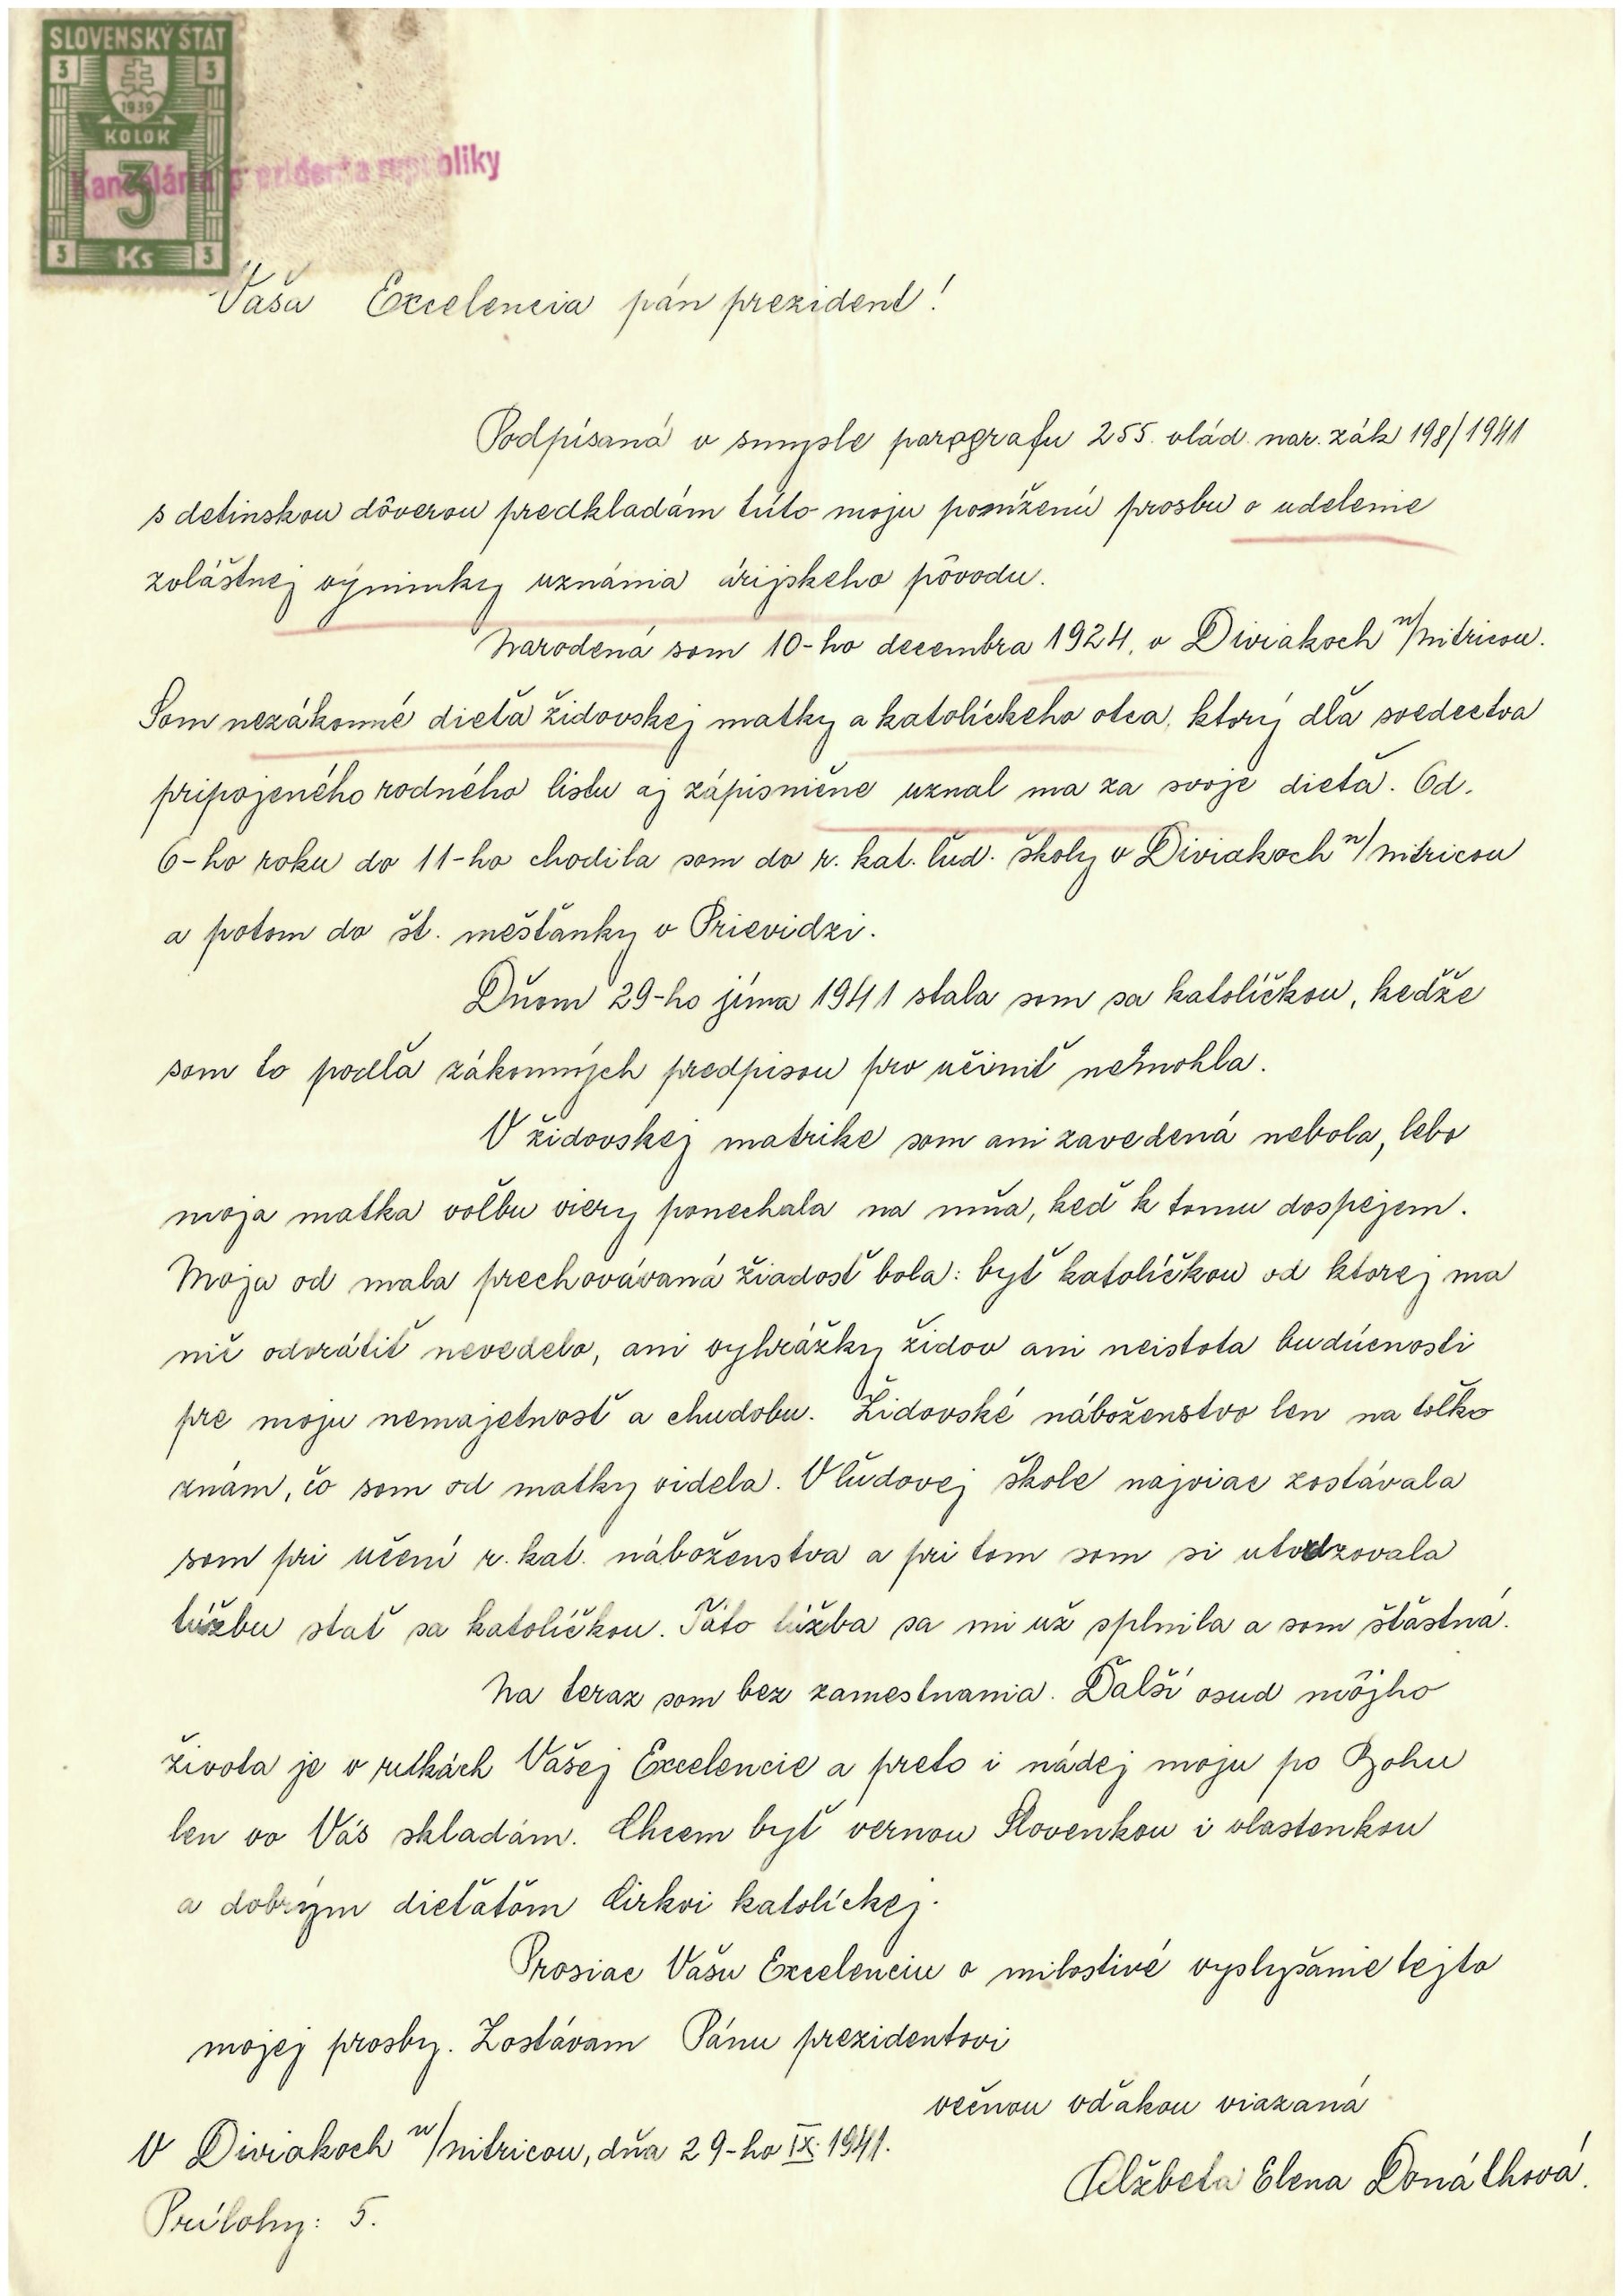 SLOVENSKÝ ŠTÁT
3 3
1939
KOLOK
3
3 Ks 3
Kancelária prezidenta republiky
Vaša Excelencia pán prezident!
Podpísaná v smysle paragrafu 255. vlád. nar. zák 198/1941
s detinskou dôverou predkladám túto moju poníženú prosbu o udelenie
zvláštnej výnimky uznánia árijskeho pôvodu.
Narodená som 10-ho decembra 1924, v Diviakoch n/Nitricou.
Som nezákonné dieťa židovskej matky a katolíckeho otca, ktorý dľa svedectva
pripojeného rodného listu aj zápisnične uznal ma za svoje dieťa. Od.
6-ho roku do 11-ho chodila som do r. kat. ľud. školy v Diviakoch n/Nitricou
a potom do št. mešťanky v Prievidzi.
Dňom 29-ho júna 1941 stala som sa katolíčkou, keďže
som to podľa zákonných predpisou prv učiniť nemohla.
V židovskej matrike som ani zavedená nebola, lebo
moja matka voľbu viery ponechala na mňa, keď k tomu dospejem.
Moja od mala prechovávaná žiadosť bola: byť katolíčkou od ktorej ma
nič odvrátiť nevedelo, ani vyhrážky židov ani neistota budúcnosti
pre moju nemajetnosť a chudobu. Židovské náboženstvo len na toľko
znám, čo som od matky videla. V ľudovej škole najviac zostávala
som pri učení r. kat. náboženstva a pri tom som si utvrdzovala
túžbu stať sa katolíčkou. Táto túžba sa mi už splnila a som šťastná.
Na teraz som bez zamestnania. Ďalší osud môjho
života je v rukách Vašej Excelencie a preto i nádej moju po Bohu
len vo Vás skladám. Chcem byť vernou Slovenkou i vlastenkou
a dobrým dieťaťom Cirkvi katolíckej.
Prosiac Vašu Excelenciu o milostivé vyslyšanie tejto
mojej prosby. Zostávam Pánu prezidentovi
večnou vďakou viazaná
V Diviakoch n/Nitricou, dňa 29-ho IX. 1941.
Alžbeta Elena Donáthová.
Prílohy: 5.